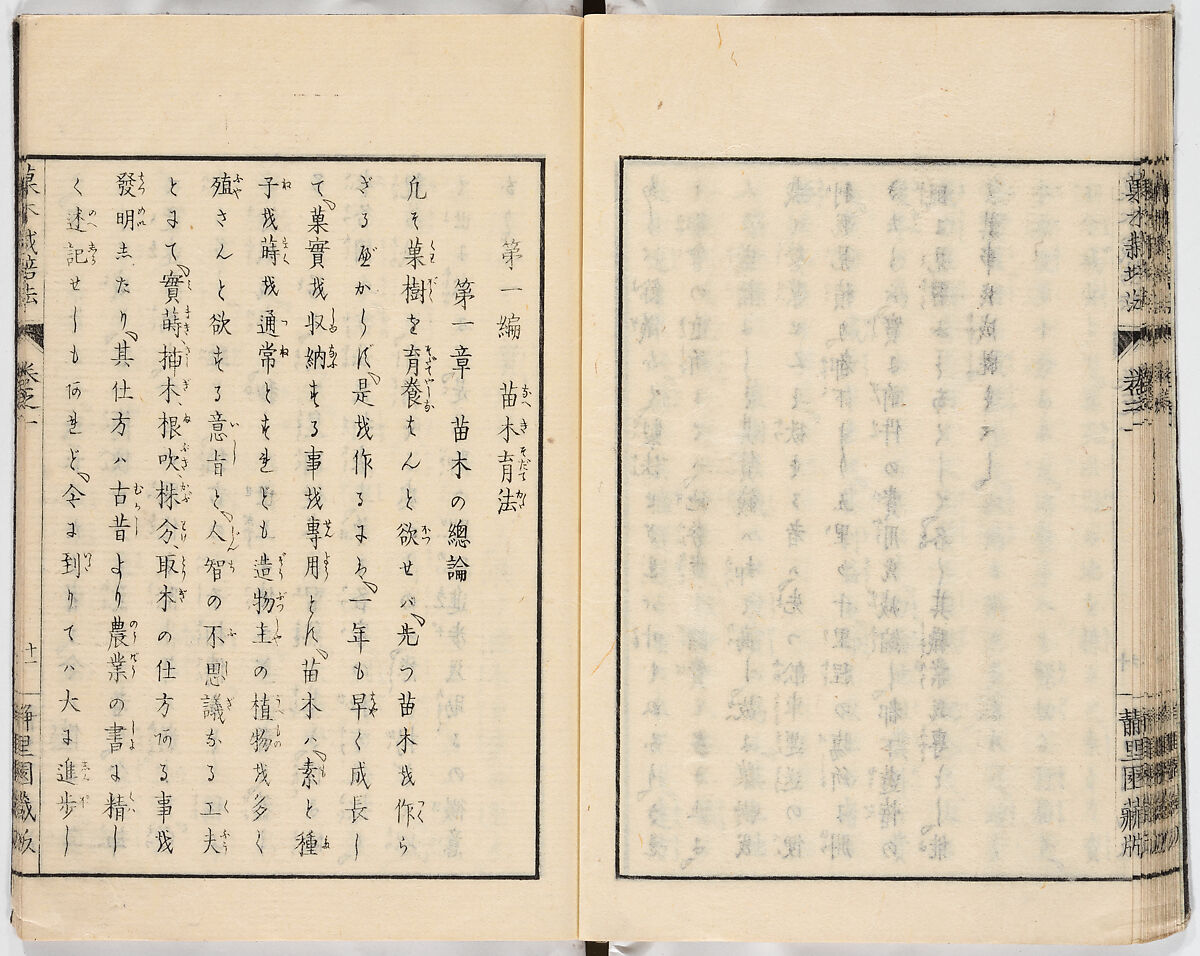 菓木栽培法
卷之一
靜里園藏版
第一編 苗木育法
第一章 苗木の總論
凡そ菓樹を育養せんと欲せハ、先つ苗木を作ら
ざる可からず、是を作るにハ、一年も早く成長し
て、菓實を収納する事を專用とす、苗木ハ、素と種
子を蒔を通常とすれども造物主の植物を多く
殖さんと欲する意旨と、人智の不思議なる工夫
とにて、實蒔、挿木、根吹、株分、取木の仕方ある事を
發明したり、其仕方ハ古昔より農業の書に精し
く述記せしもあれど、今に到りてハ大に進歩し
菓木栽培法
卷之一
十一
靜里園藏版